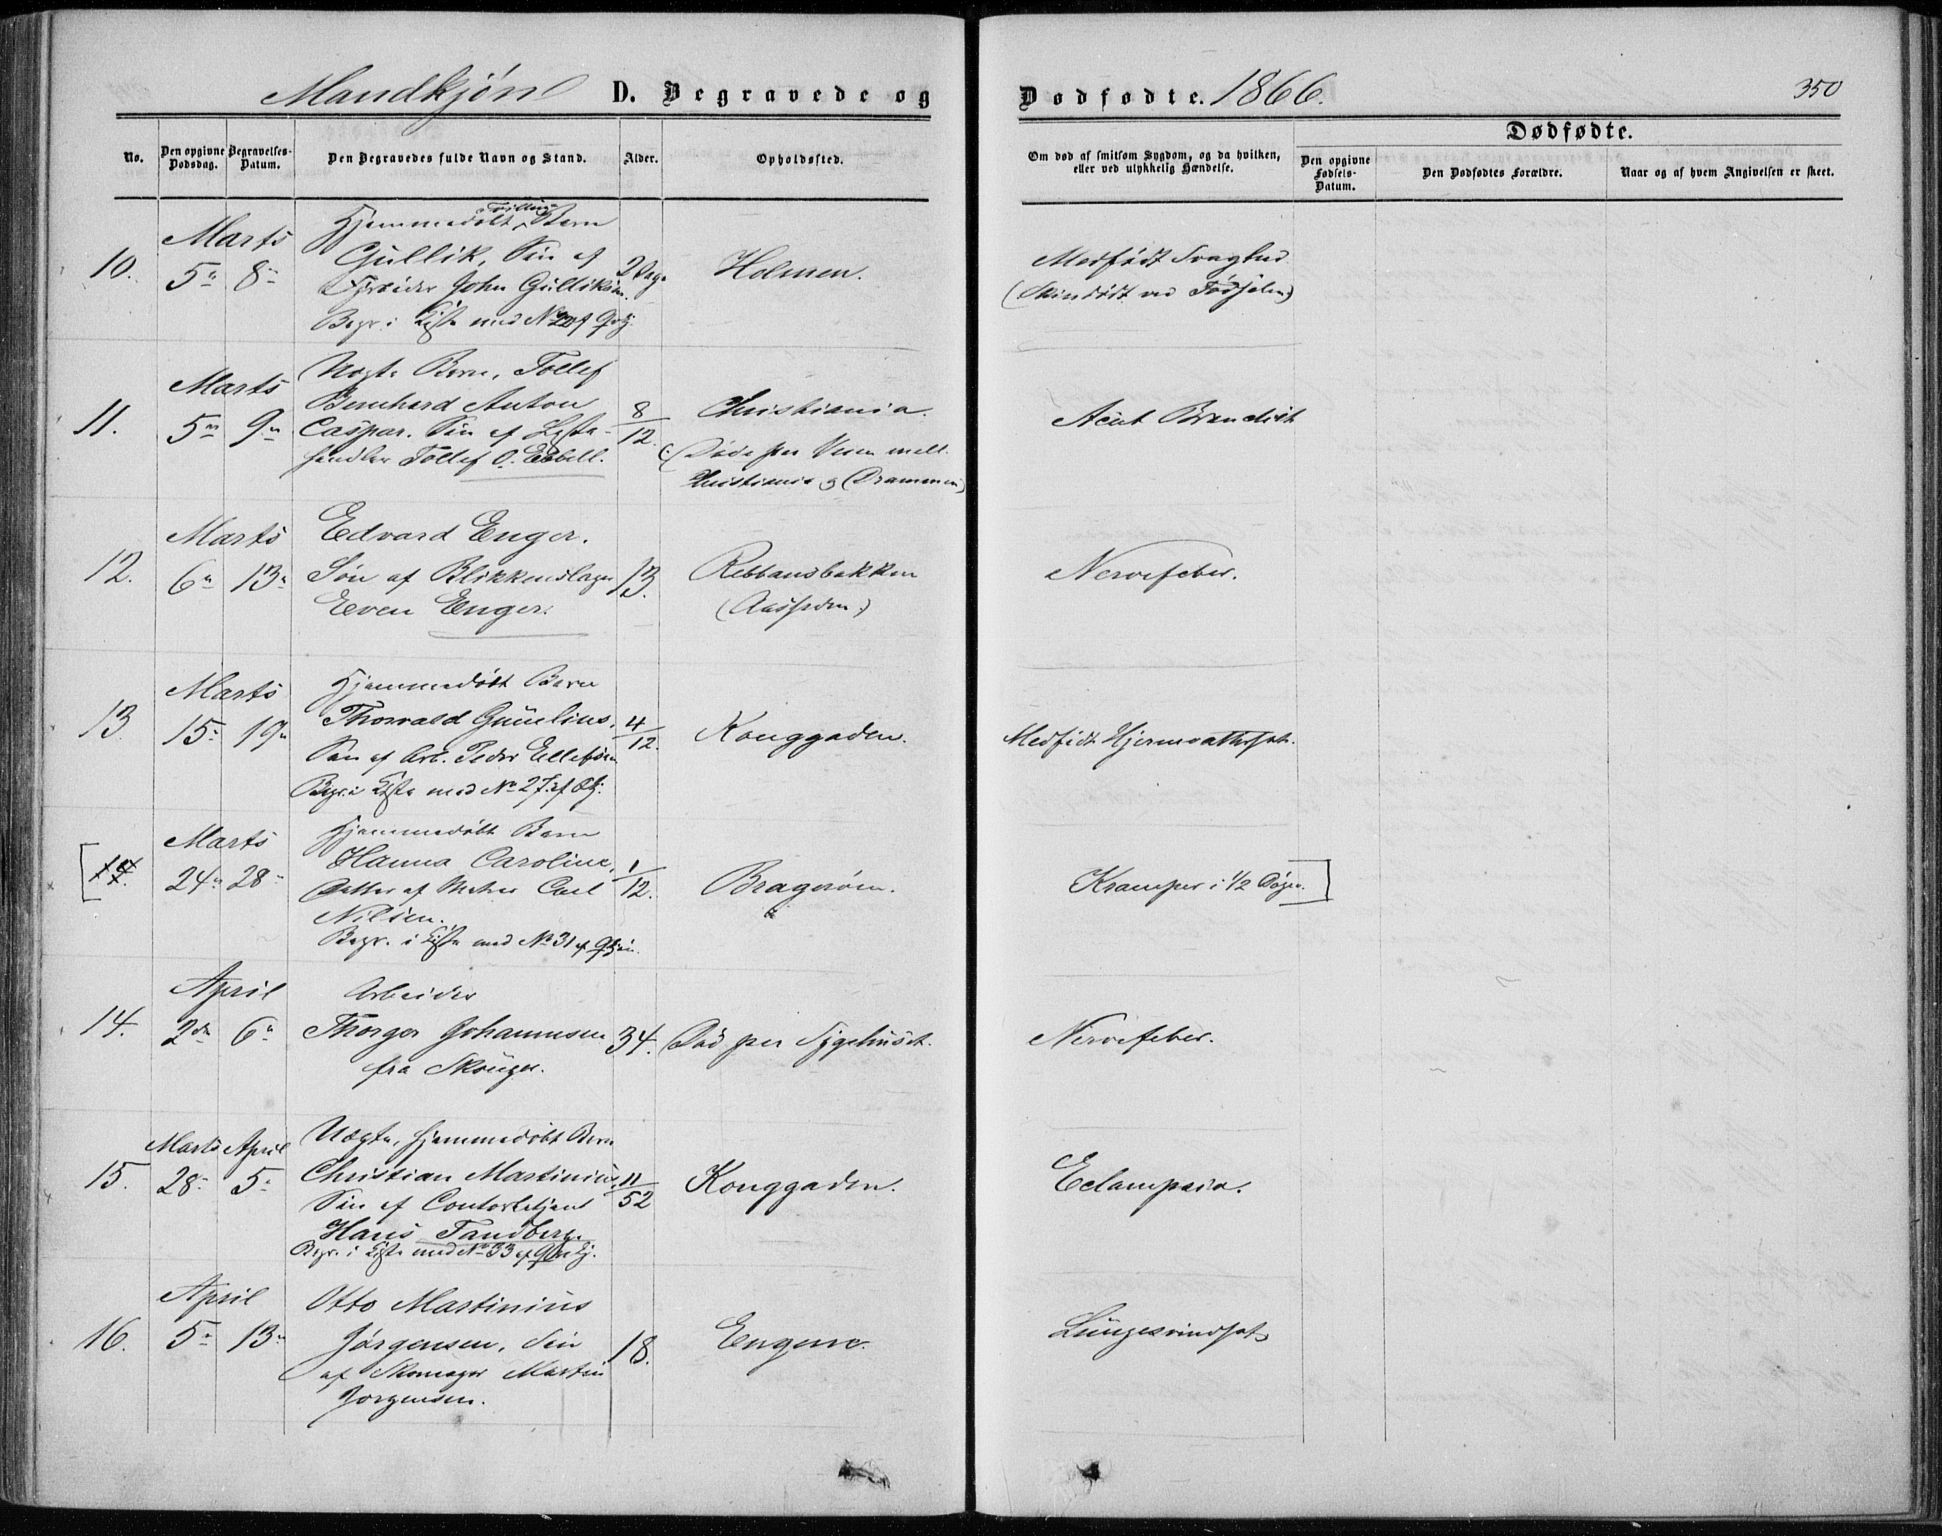 Mandkjøn D. Begravede og Dødfødte. 1866. 350
No.
Den opgivne Dødsdag.
Begravelses-Datum.
Den Begravedes fulde Navn og Stand.
Alder.
Opholdssted.
Om død af smitsom Sygdom, og da hvilken,
eller ved ulykkelig Hændelse.
Dødfødte.
Den opgivne Fødsels-Datum.
Den Dødfødtes Forældre.
Naar og af hvem Angivelsen er skeet.
Tvilling
Marts Hjemmedøbt Barn
10. 5 8 Gullik, Søn af 2 Dage Holmen. Medfødt Svaghed
John Gulliksen. (Skindødt ved Fødselen)
Begr. i Kiste med No
Marts Uægte Barn, Tollef
11. 5 9 Bernhard Anton 8/12 Christiania. Acut Bronchit
Caspar. Søn af
Tollef O. Ebbell. (Døde paa Veien mell.
Christiania og Drammen)
Marts Edvard Enger.
12. 6 13 Søn af Blikkenslager 13. Rebbansbakken Nervefeber.
Even Enger.
Marts Hjemmedøbt Barn
13 15 19 Thorvald Gunelius, 4/12. Konggaden. Medfødt
Søn af Arb. Peder Ellefsen
Begr. i Kiste med No 27 af Qkj.
Marts Hjemmedøbt Barn
[14. 24 28 Hanna Caroline, 1/12. Bragerøen. Kramper i 1/2 Døgn.]
Datter af Carl
Nilsen.
Begr. i Kiste med No 31 af
April Arbeider
14. 2den 6 Thorger Johannesen 34. Død paa Sygehuset. Nervefeber.
fra Skouger.
Marts April Uægte, hjemmedøbt Barn
15. 28 5 Christian Martinius, 11/52 Konggaden. Eclampsia.
Søn af Contorbetjent
Hans Tandberg.
Begr. i Kiste med No 33 af
April Otto Martinius
16. 5 13 Jørgensen, Søn 18. Engene. Lungesvindsot
af Skomager Martin
Jørgensen.